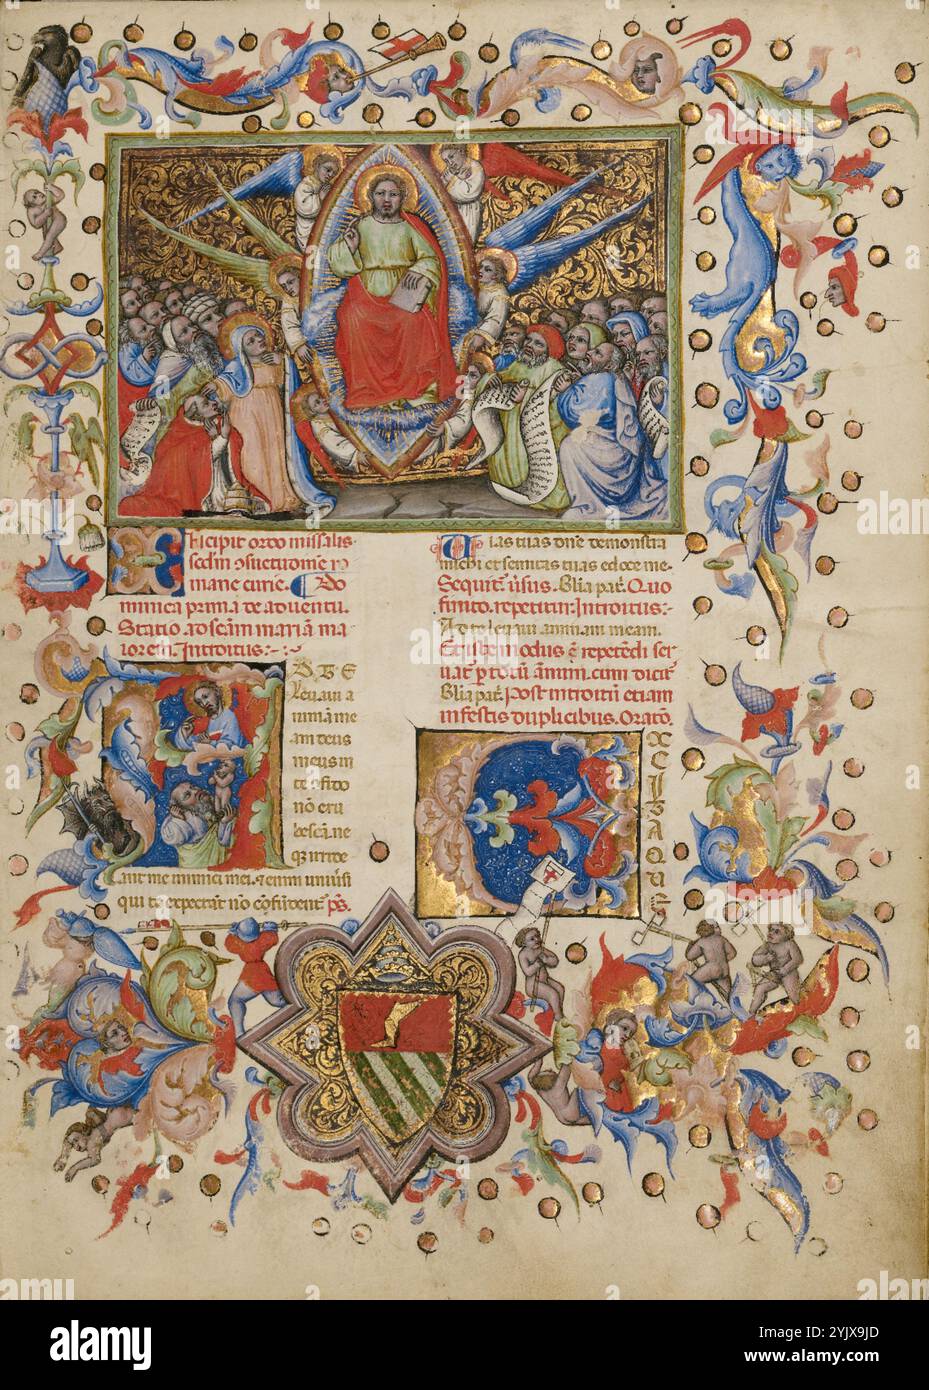 Incipit ordo missalis
secdm ꝯsuetudinem ro
mane curie. Do
minica prima de aduentu.
Statio ad scam mariā ma
iorem. Introitus:
AD TE
leuaui a
nimā me
am deus
meus in
te ꝯfido
nō eru
bescā. ne
qꝫ irride
ant me inimici mei. ⁊ enim uniūsi
qui te expectāt nō cōfūdent̄. ps.
Uias tuas dn̄e demonstra
michi et semitas tuas edoce me.
Sequit̄ ūsus. Glīa pat̄. Quo
finito. repetitur: Introitus:
Ad te leuaui animam meam.
Et iste modus repetēdi ser
uat̄ p totū annum. cum dicit̄
Glīa pat̄. post introitū etiam
in festis duplicibus. Oratō.
EXCITA QUE
alamy
Image ID: 2YJX9JD
www.alamy.com